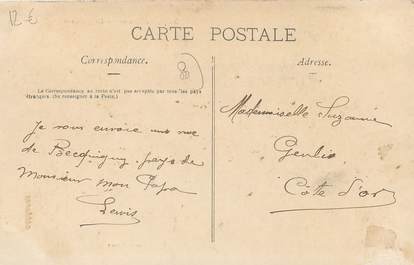 12 €
CARTE POSTALE
Correspondance.
Adresse.
80
La Correspondance au recto n'est pas acceptée par tous les pays
étrangers. (Se renseigner à la Poste.)
Je vous envoie une vue
de Becquigny pays de
Monsieur mon Papa
Mademoiselle Suzanne
Genlis
Côte d'or